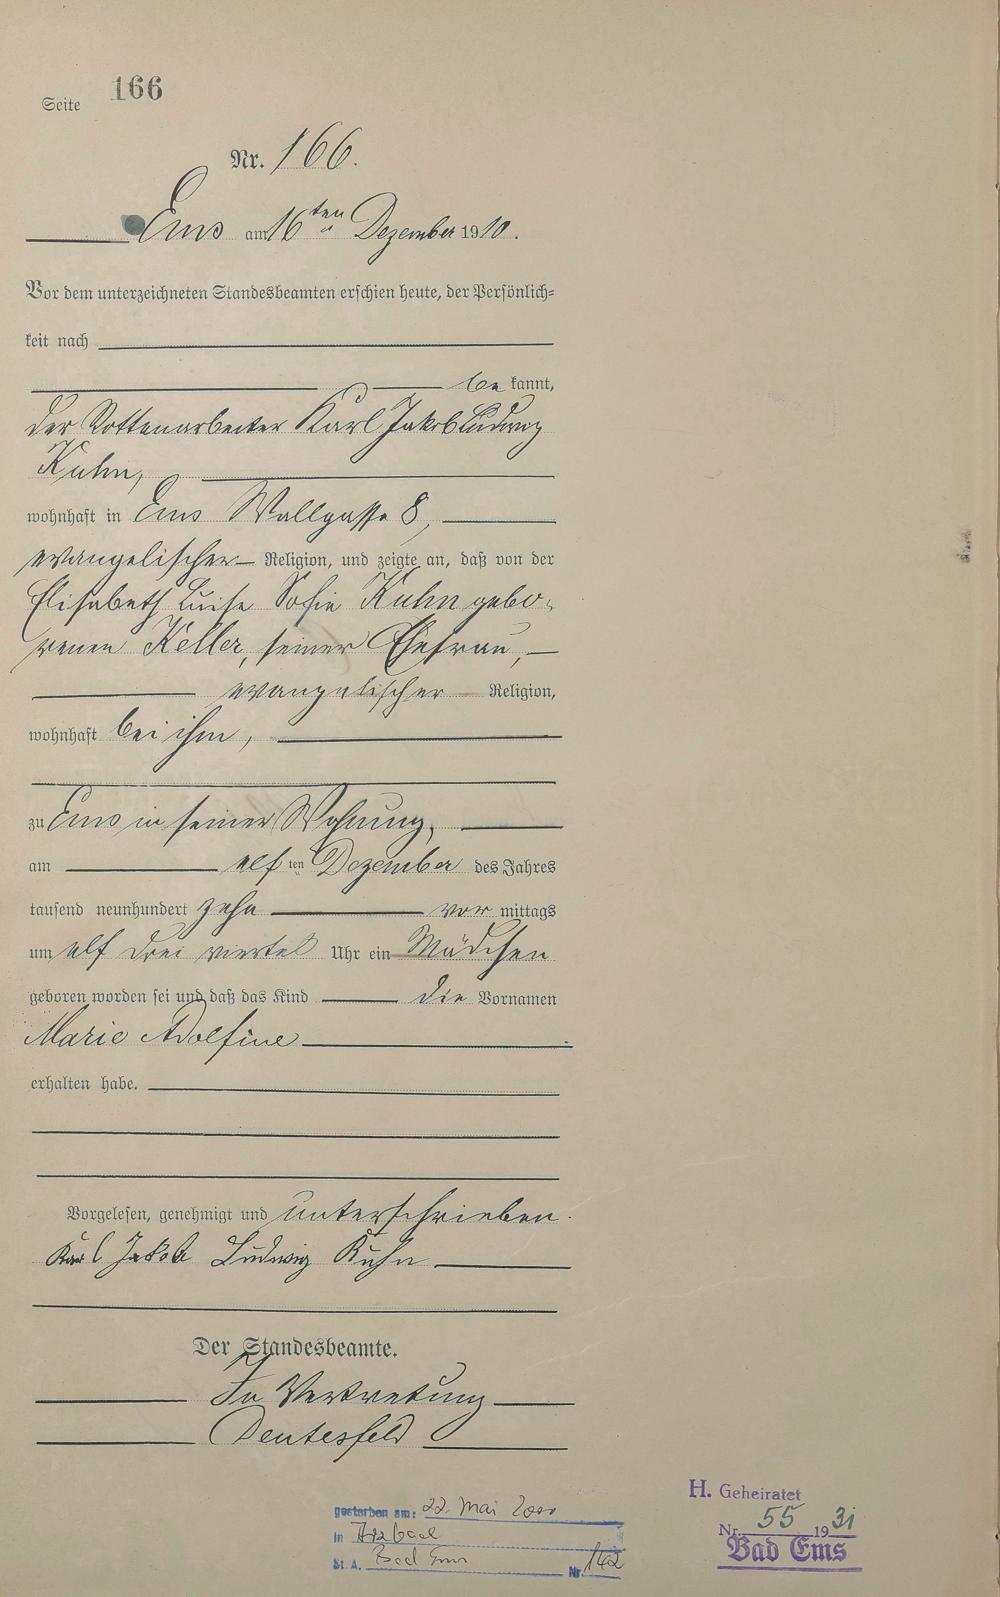 Seite 166
Nr. 166.
Ems am 16ten Dezember 1910.
Vor dem unterzeichneten Standesbeamten erschien heute, der Persönlich-
keit nach
be kannt,
der Rottenarbeiter Karl Jakob Ludwig
Kuhn,
wohnhaft in Ems Wallgasse 8,
evangelischer Religion, und zeigte an, daß von der
Elisabeth Luise Sofie Kuhn gebo-
renen Keller, seiner Ehefrau,
evangelischer Religion,
wohnhaft bei ihm,
zu Ems in seiner Wohnung,
am elf ten Dezember des Jahres
tausend neunhundert zehn vor mittags
um elf drei viertel Uhr ein Mädchen
geboren worden sei und daß das Kind die Vornamen
Marie Adolfine
erhalten habe.
Vorgelesen, genehmigt und unterschrieben.
Karl Jakob Ludwig Kuhn
Der Standesbeamte.
In Vertretung
gestorben am: 22. Mai 2000
in Arzbach
St. A. Bad Ems Nr. 142
H. Geheiratet
Nr. 55 1931
Bad Ems